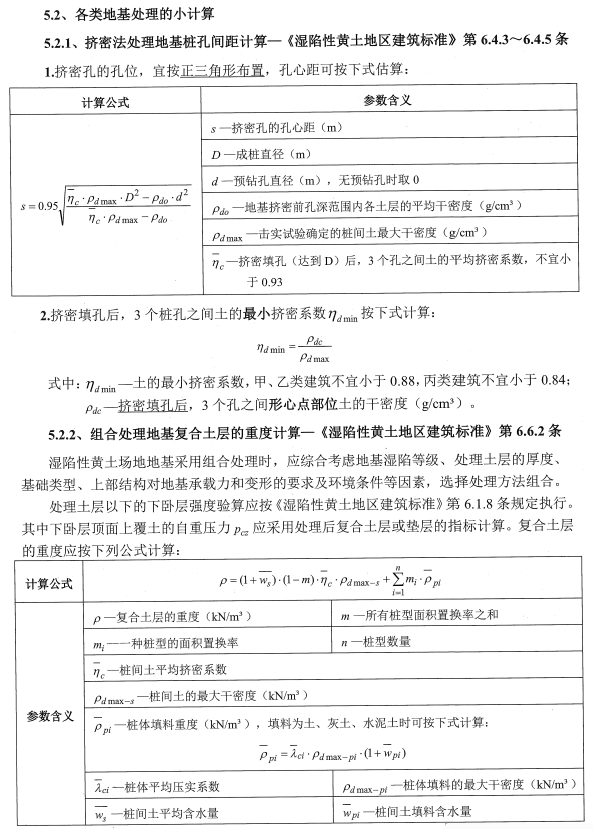 5.2、各类地基处理的小计算
5.2.1、挤密法处理地基桩孔间距计算—《湿陷性黄土地区建筑标准》第 6.4.3～6.4.5 条
1.挤密孔的孔位，宜按正三角形布置，孔心距可按下式估算：
计算公式 参数含义
s = 0.95√((η̄c·ρd max·D² − ρdo·d²)/(η̄c·ρd max − ρdo))
s —挤密孔的孔心距（m）
D —成桩直径（m）
d —预钻孔直径（m），无预钻孔时取 0
ρdo —地基挤密前孔深范围内各土层的平均干密度（g/cm³）
ρd max —击实试验确定的桩间土最大干密度（g/cm³）
η̄c —挤密填孔（达到 D）后，3 个孔之间土的平均挤密系数，不宜小
于 0.93
2.挤密填孔后，3 个桩孔之间土的最小挤密系数ηd min 按下式计算：
ηd min = ρdc/ρd max
式中：ηd min —土的最小挤密系数，甲、乙类建筑不宜小于 0.88，丙类建筑不宜小于 0.84；
ρdc —挤密填孔后，3 个孔之间形心点部位土的干密度（g/cm³）。
5.2.2、组合处理地基复合土层的重度计算—《湿陷性黄土地区建筑标准》第 6.6.2 条
湿陷性黄土场地地基采用组合处理时，应综合考虑地基湿陷等级、处理土层的厚度、
基础类型、上部结构对地基承载力和变形的要求及环境条件等因素，选择处理方法组合。
处理土层以下的下卧层强度验算应按《湿陷性黄土地区建筑标准》第 6.1.8 条规定执行。
其中下卧层顶面上覆土的自重压力 pcz 应采用处理后复合土层或垫层的指标计算。复合土层
的重度应按下列公式计算：
计算公式 ρ = (1 + w̄s)·(1 − m)·η̄c·ρd max−s + Σⁿᵢ₌₁ mi·ρ̄pi
参数含义
ρ —复合土层的重度（kN/m³） m —所有桩型面积置换率之和
mi —一种桩型的面积置换率 n —桩型数量
η̄c —桩间土平均挤密系数
ρd max−s —桩间土的最大干密度（kN/m³）
ρ̄pi —桩体填料重度（kN/m³），填料为土、灰土、水泥土时可按下式计算：
ρ̄pi = λ̄ci·ρd max−pi·(1 + w̄pi)
λ̄ci —桩体平均压实系数 ρd max−pi —桩体填料的最大干密度（kN/m³）
w̄s —桩间土平均含水量 w̄pi —桩间土填料含水量